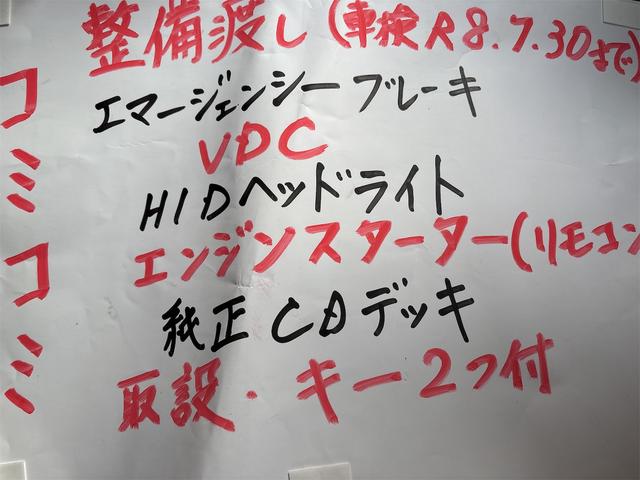 整備渡し(車検R8.7.30まで)
エマージェンシーブレーキ
VDC
HIDヘッドライト
エンジンスターター(リモコン
純正CDデッキ
取説・キー2つ付
コミコミ